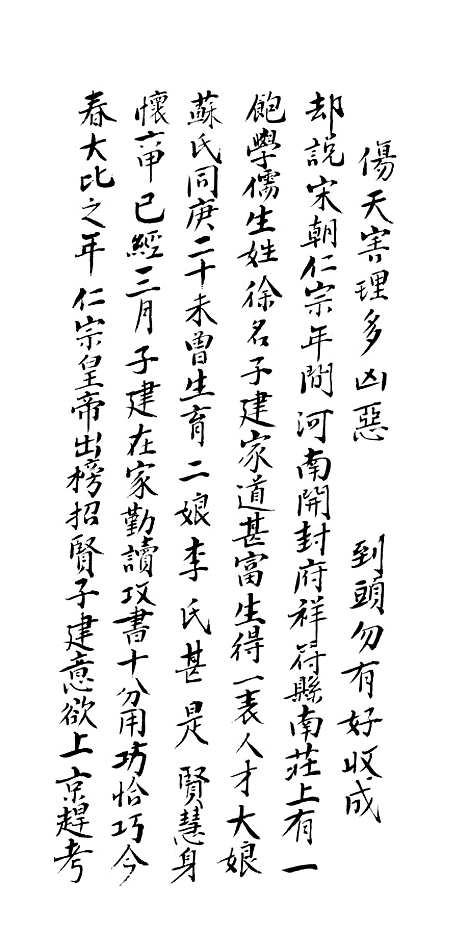 傷天害理多凶惡　到頭勿有好收成
却說宋朝仁宗年間河南開封府祥符縣南莊上有一
飽學儒生姓徐名子建家道甚富生得一表人才大娘
蘇氏同庚二十未曾生育二娘李氏甚是賢慧身
懷六甲已經三月子建在家勤讀攻書十分用功恰巧今
春大比之年仁宗皇帝出榜招賢子建意欲上京趕考